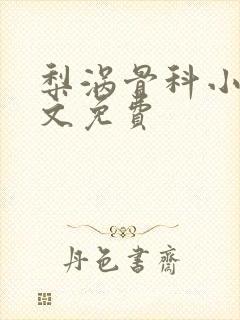 梨涡骨科小
文免費
丹色書齋